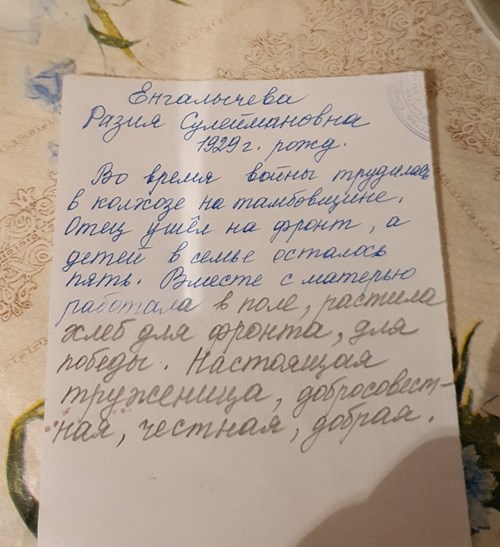 Енгалычева
Разия Сулеймановна
1929 г. рожд.
Во время войны трудилась
в колхозе на тамбовщине.
Отец ушёл на фронт, а
детей в семье осталось
пять. Вместе с матерью
работала в поле, растила
хлеб для фронта, для
победы. Настоящая
труженица, добросовест-
ная, честная, добрая.